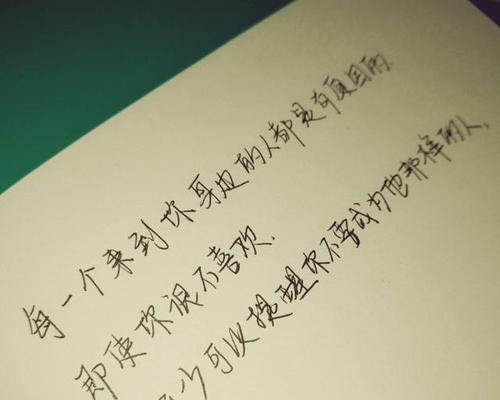 每一个来到你身边的人都是有原因的.
即使你很不喜欢.
少可以提醒你不要成为他那样的人.